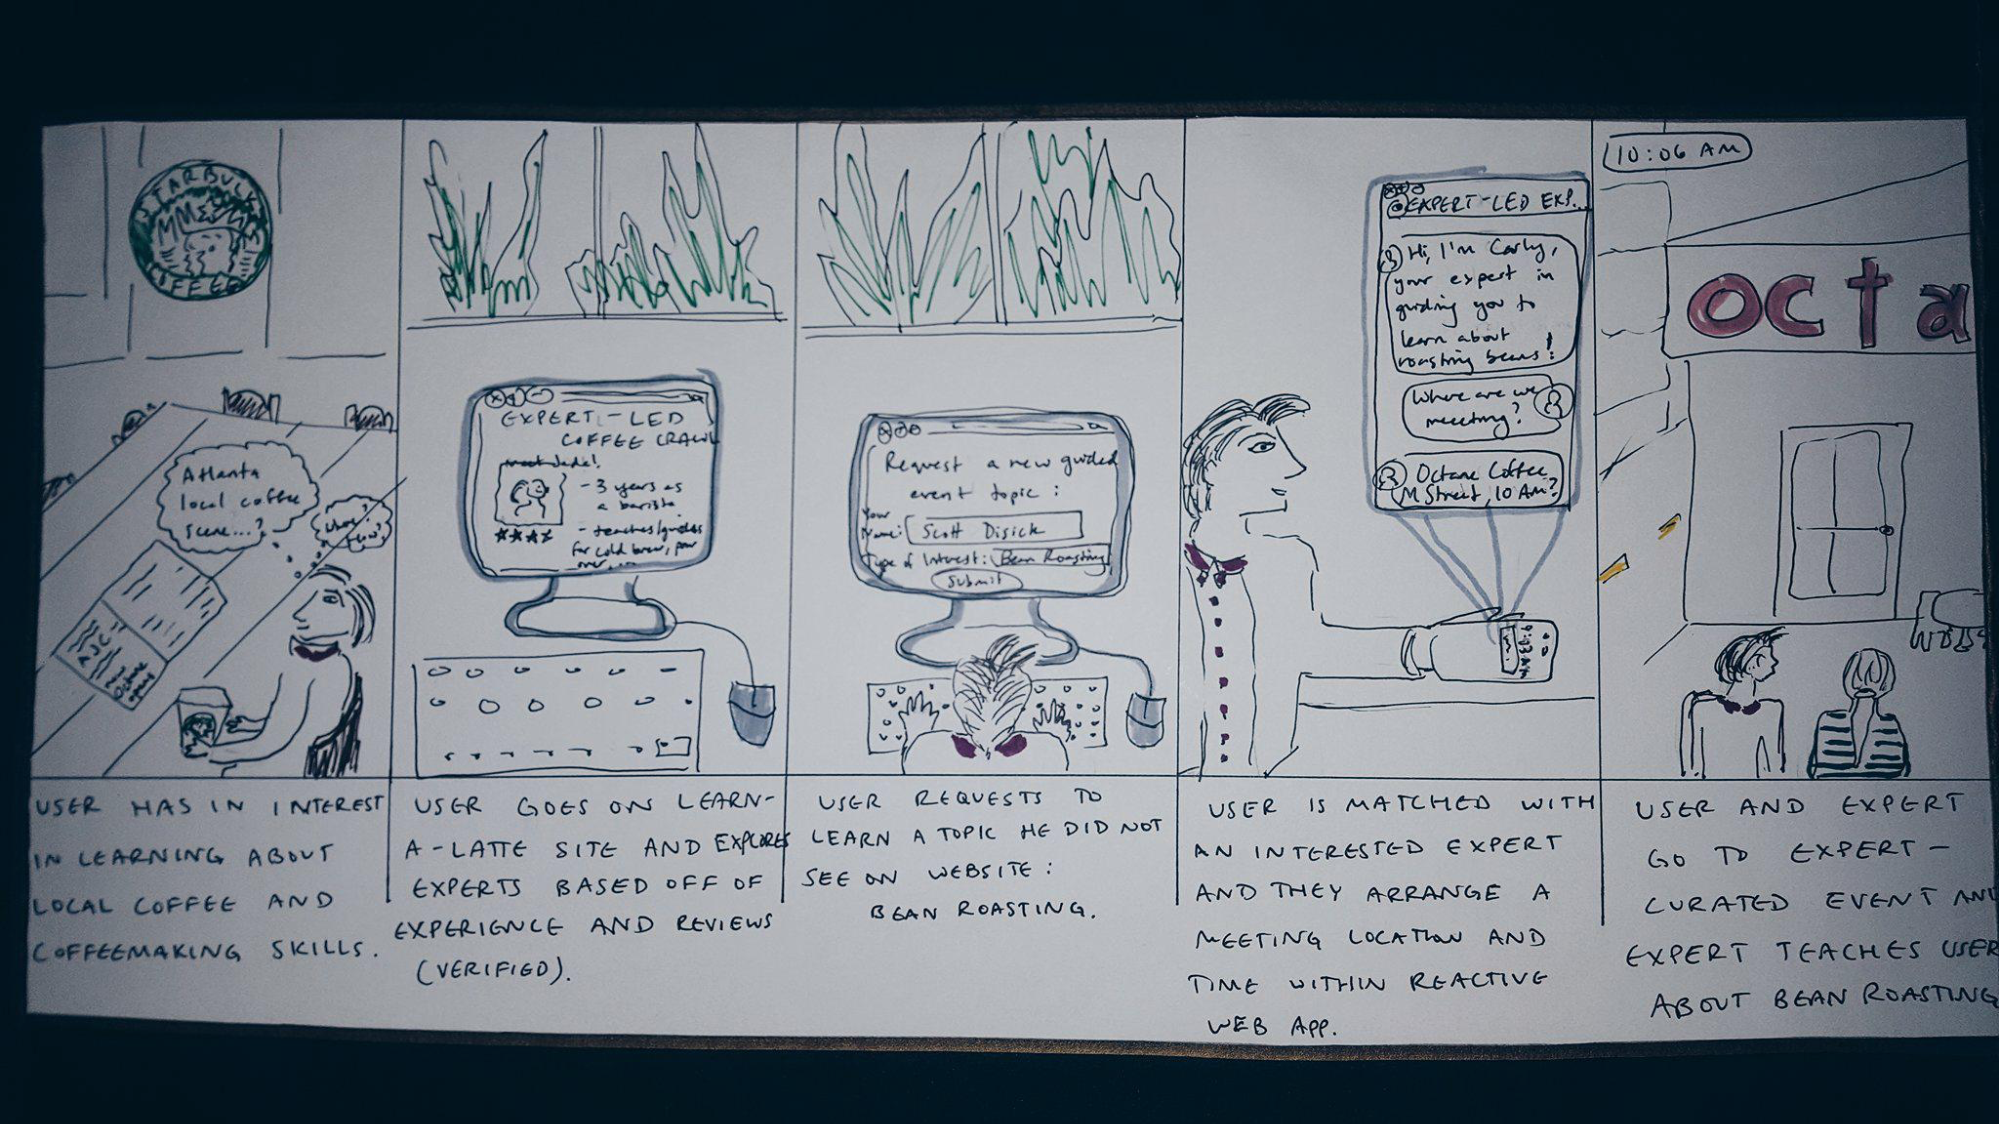 STARBUCKS
COFFEE
Atlanta
local coffee
scene...?
AJC
USER HAS IN INTEREST
IN LEARNING ABOUT
LOCAL COFFEE AND
COFFEEMAKING SKILLS.
EXPERT-LED
COFFEE CRAWL
- 3 years as
a barista
- teaches/guides
for cold brew, pour
over, ...
USER GOES ON LEARN-
A-LATTE SITE AND EXPLORES
EXPERTS BASED OFF OF
EXPERIENCE AND REVIEWS
(VERIFIED).
Request a new guided
event topic:
Your
Name: Scott Disick
Type of Interest: Bean Roasting
Submit
USER REQUESTS TO
LEARN A TOPIC HE DID NOT
SEE ON WEBSITE:
BEAN ROASTING.
EXPERT-LED EXP...
Hi, I'm Carly,
your expert in
guiding you to
learn about
roasting beans!
Where are we
meeting?
Octane Coffee,
M Street, 10 AM?
USER IS MATCHED WITH
AN INTERESTED EXPERT
AND THEY ARRANGE A
MEETING LOCATION AND
TIME WITHIN REACTIVE
WEB APP.
10:06 AM
octa
USER AND EXPERT
GO TO EXPERT-
CURATED EVENT AND
EXPERT TEACHES USER
ABOUT BEAN ROASTING